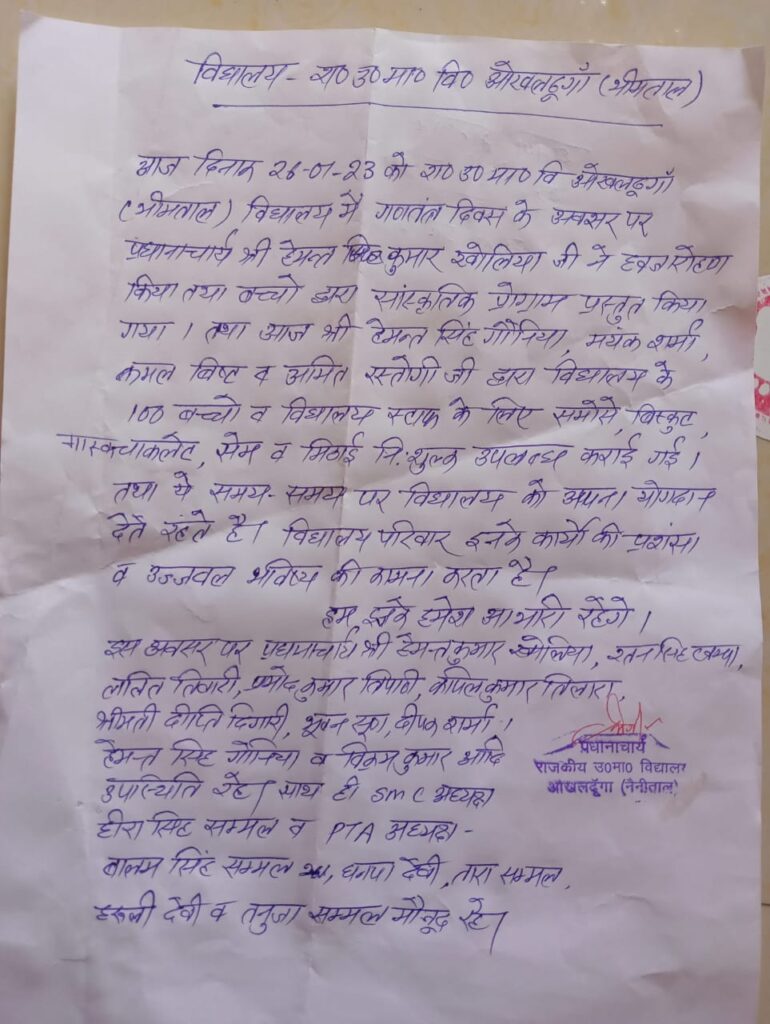 विद्यालय - रा० उ० मा० वि० ओखलढूगाँ (भीमताल)
आज दिनाक 26-01-23 को रा० उ० मा० वि ओखलढूगाँ
(भीमताल) विद्यालय मे गणतंत्र दिवस के अवसर पर
प्रधानाचार्य श्री हेमन्त कुमार खोलिया जी ने ध्वजारोहण
किया तथा बच्चो द्वारा सांस्कृतिक प्रोग्राम प्रस्तुत किया
गया । तथा आज श्री हेमन्त सिंह गौनिया, मयंक शर्मा,
कमल बिष्ट व अमित रस्तोगी जी द्वारा विद्यालय के
100 बच्चो व विद्यालय स्टाफ के लिए समोसे, बिस्कुट,
मास्क चाकलेट, सेम व मिठाई नि:शुल्क उपलब्ध कराई गई ।
तथा ये समय-समय पर विद्यालय को अपना योगदान
देते रहते है। विद्यालय परिवार इनके कार्यो की प्रशंसा
व उज्जवल भविष्य की कामना करता है।
हम इनके हमेशा आभारी रहेंगे ।
इस अवसर पर प्रधानाचार्य श्री हेमन्त कुमार खोलिया, रतन सिंह
ललित तिवारी, प्रमोद कुमार त्रिपाठी, कपिल कुमार तिलारा,
श्रीमती दीप्ति दिगारी, भुवन , दीपक शर्मा ।
हेमन्त सिंह गौनिया व विक्रम कुमार आदि
उपस्थिति रहे। साथ ही SMC अध्यक्ष
हीरा सिंह सम्मल व PTA अध्यक्ष -
बालम सिंह सम्मल , धनपा देवी, तारा सम्मल,
देवी व तनुजा सम्मल मौजूद रहे।
प्रधानाचार्य
राजकीय उ०मा० विद्यालय
ओखलढूँगा (नैनीताल)